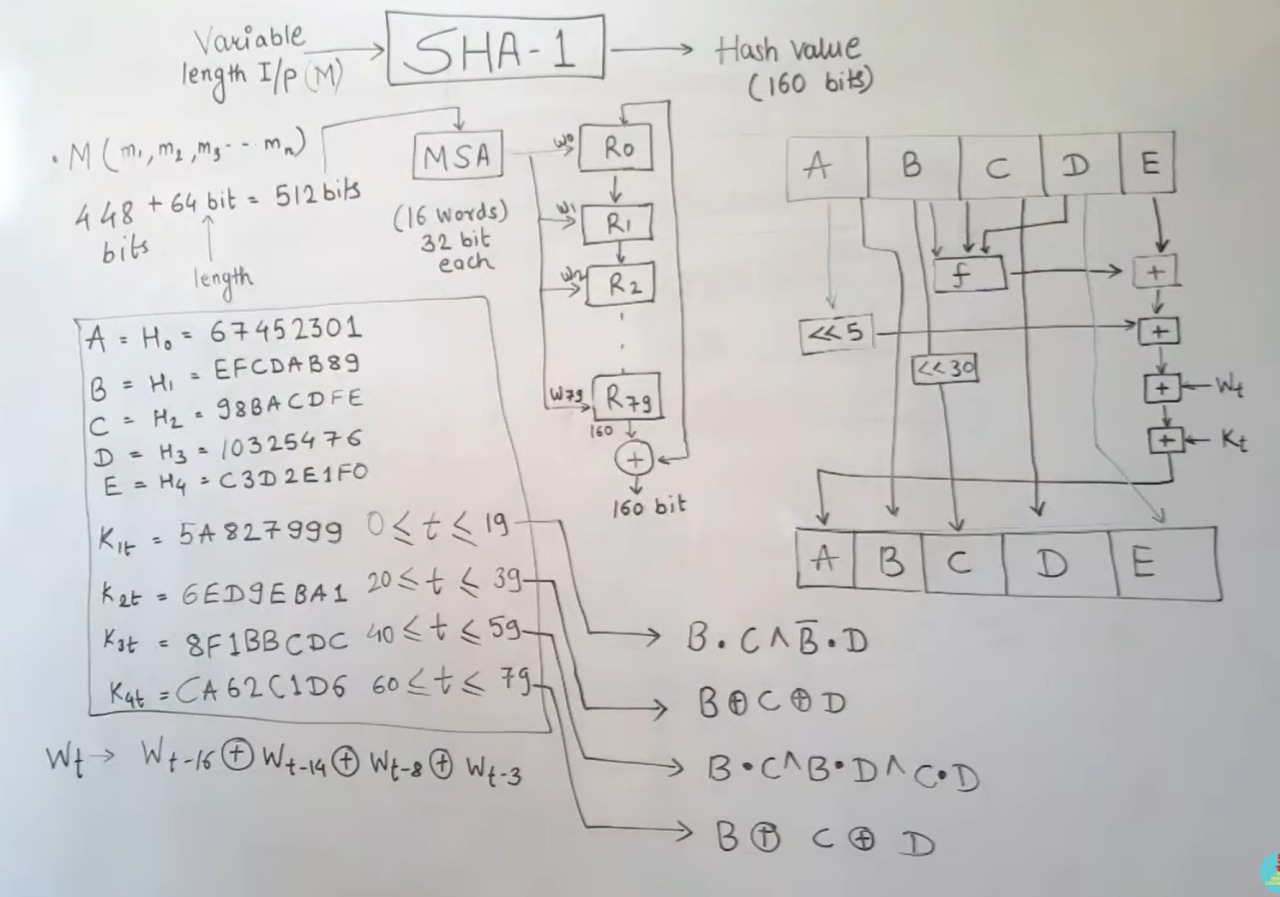 Variable
length I/p (M)
SHA-1
Hash value
(160 bits)
. M (m₁, m₂, m₃ - - - mₙ)
448 + 64 bit = 512 bits
bits
length
MSA
(16 words)
32 bit
each
W0
R0
W1
R1
W2
R2
W79
R79
160
+
160 bit
A B C D E
f
+
<<5
+
<<30
+ Wt
+ Kt
A B C D E
A = H₀ = 67452301
B = H₁ = EFCDAB89
C = H₂ = 98BACDFE
D = H₃ = 10325476
E = H₄ = C3D2E1F0
K1t = 5A827999 0 ≤ t ≤ 19
K2t = 6ED9EBA1 20 ≤ t ≤ 39
K3t = 8F1BBCDC 40 ≤ t ≤ 59
K4t = CA62C1D6 60 ≤ t ≤ 79
B . C ∧ B̅ . D
B ⊕ C ⊕ D
B • C ∧ B • D ∧ C • D
B ⊕ C ⊕ D
Wt → Wt-16 ⊕ Wt-14 ⊕ Wt-8 ⊕ Wt-3